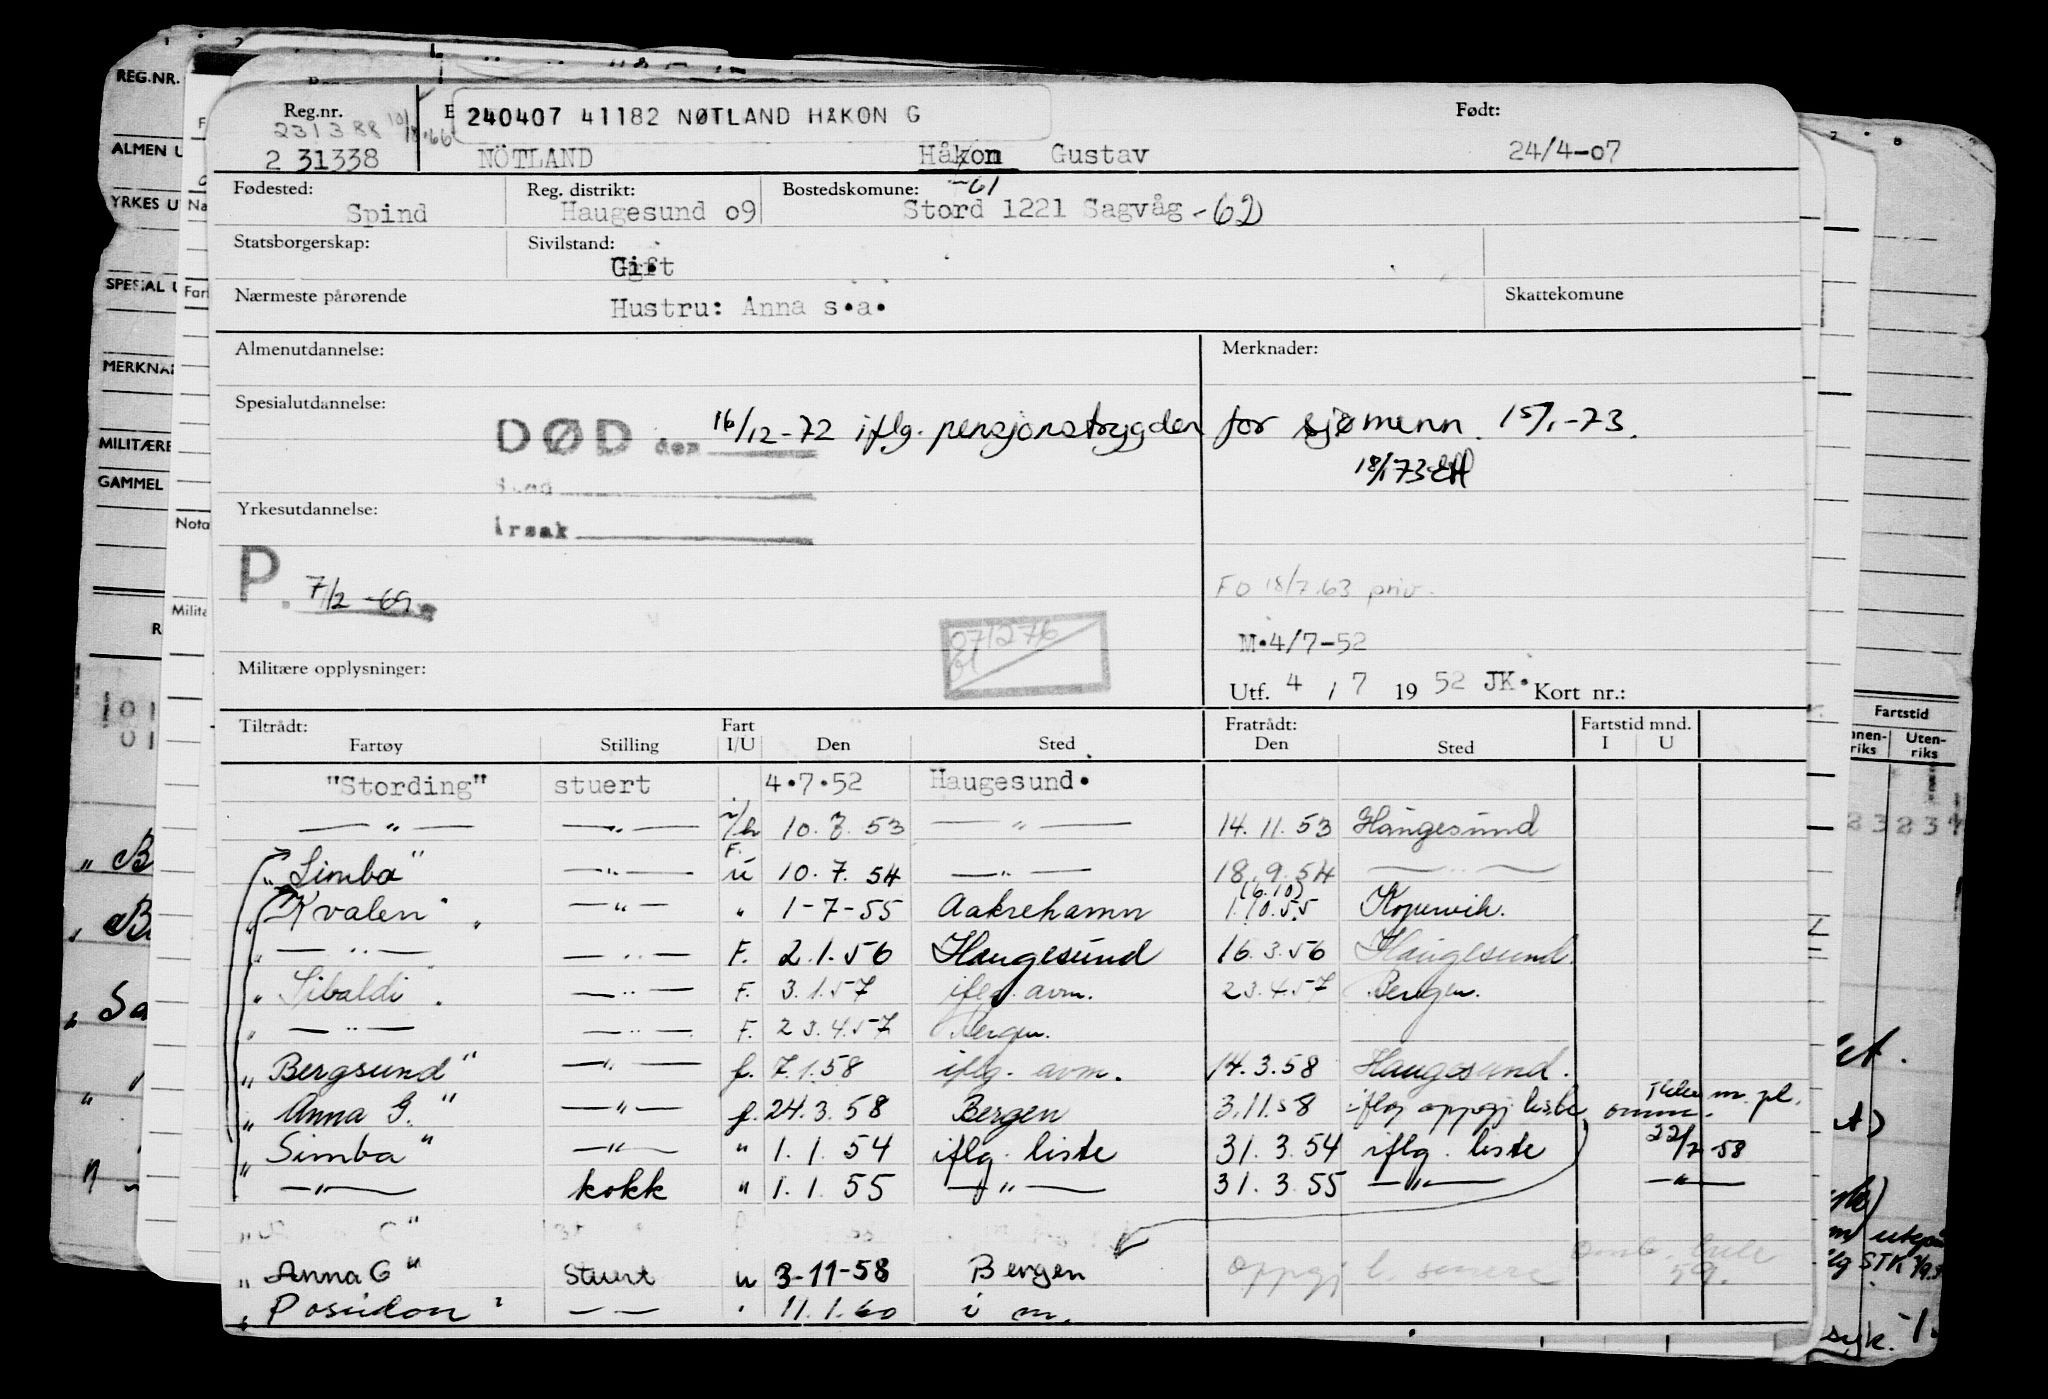 REG.NR.
ALMEN U
YRKES U
SPESIAL U
MERKNA
MILITÆRE
GAMMEL
Nota
Reg.nr.
231388 10/8.66
2 31338
240407 41182 NØTLAND HÅKON G
NÖTLAND Håkon Gustav
Født:
24/4-07
Fødested:
Spind
Reg. distrikt:
Haugesund 09
Bostedskomune: -61
Stord 1221 Sagvåg -62
Statsborgerskap:
Sivilstand:
Gift
Nærmeste pårørende
Hustru: Anna s.a.
Skattekomune
Almenutdannelse:
Merknader:
Spesialutdannelse:
DØD den 16/12-72 iflg. pensjonstrygden for sjømenn. 15/1-73.
18/1 73 EH
Yrkesutdannelse:
årsak
P. 7/2 -69
FO 18/7.63 priv.
071276
M.4/7-52
Militære opplysninger:
Utf. 4 / 7 19 52 JK. Kort nr.:
Tiltrådt: Fart Fratrådt: Fartstid mnd.
Fartøy Stilling I/U Den Sted Den Sted I U
"Stording" stuert 4.7.52 Haugesund.
— " — — " — 10.7.53 — " — 14.11.53 Haugesund
F.
" Simba" — " — u 10.7.54 — " — 18.9.54 — " —
(6.10)
" Kvalen" — " — " 1-7-55 Aakrehamn 1.10.55 Kopervik.
" — " — — " — F. 2.1.56 Haugesund 16.3.56 Haugesund.
" Sibaldi" — " — F. 3.1.57 iflg. avm. 23.4.57 Bergen.
" — " — — " — F. 23.4.57 Bergen.
" Bergsund" — " — f. 7.1.58 iflg. avm. 14.3.58 Haugesund.
" Anna G." — " — f. 24.3.58 Bergen 3.11.58 iflg oppgj liste m. pl.
" Simba" — " — " 1.1.54 iflg. liste 31.3.54 iflg. liste 22/7 58
" — " — kokk " 1.1.55 — " — 31.3.55 — " — — " —
" Anna G" Stuert u 3-11-58 Bergen oppgj l. senere 59.
" Poseidon" — — " 11.1.60 i m.
Fartstid
Innen-riks Uten-riks